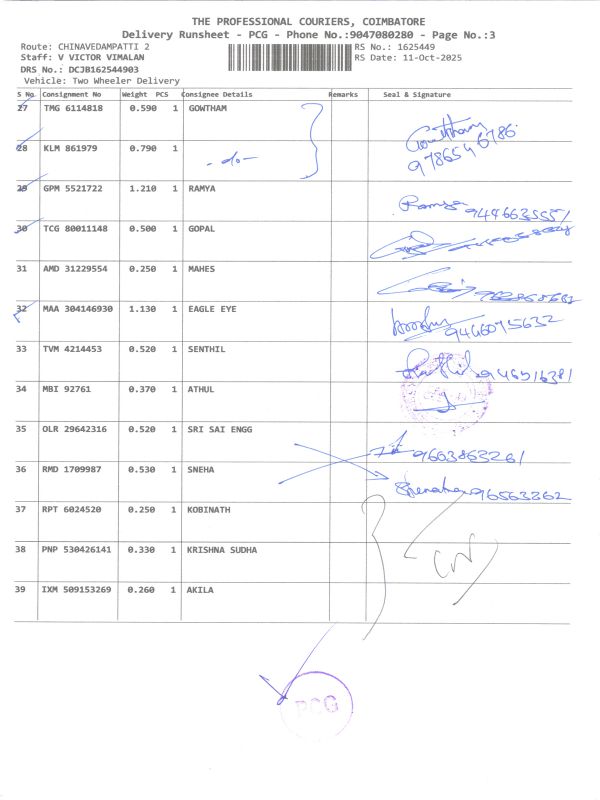 THE PROFESSIONAL COURIERS, COIMBATORE
Delivery Runsheet - PCG - Phone No.:9047080280 - Page No.:3
Route: CHINAVEDAMPATTI 2 RS No.: 1625449
Staff: V VICTOR VIMALAN RS Date: 11-Oct-2025
DRS No.: DCJB162544903
Vehicle: Two Wheeler Delivery
S No. Consignment No Weight PCS Consignee Details Remarks Seal & Signature
27 TMG 6114818 0.590 1 GOWTHAM Gowtham
28 KLM 861979 0.790 1 - do - 9786546786
29 GPM 5521722 1.210 1 RAMYA Ramya
30 TCG 80011148 0.500 1 GOPAL
31 AMD 31229554 0.250 1 MAHES
32 MAA 304146930 1.130 1 EAGLE EYE 9446075632
33 TVM 4214453 0.520 1 SENTHIL
34 MBI 92761 0.370 1 ATHUL
35 OLR 29642316 0.520 1 SRI SAI ENGG 9603863261
36 RMD 1709987 0.530 1 SNEHA 96563262
37 RPT 6024520 0.250 1 KOBINATH
38 PNP 530426141 0.330 1 KRISHNA SUDHA
39 IXM 509153269 0.260 1 AKILA
PCG